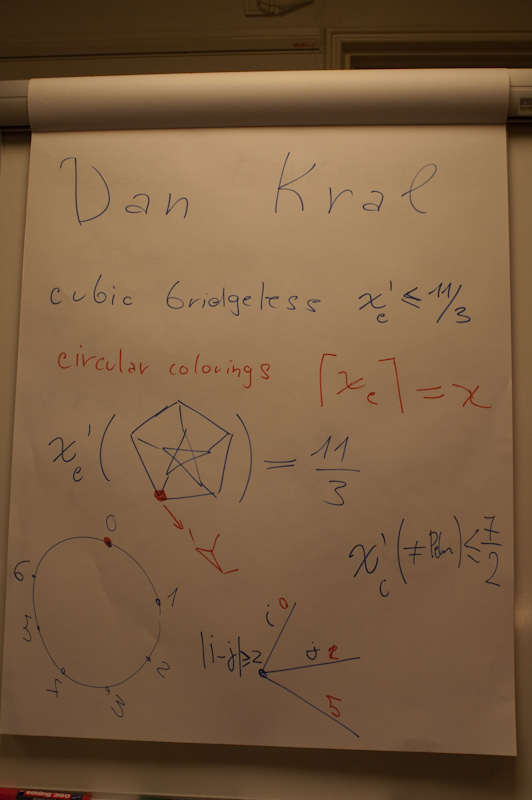 Dan Kral
cubic bridgeless χ'c ≤ 11/3
circular colorings ⌈χc⌉ = χ
χ'c( ) = 11/3
χ'c(≠Petersen) ≤ 7/2
0
6
1
5
2
4
3
|i-j|≥2
i 0
j 2
5
edding 360